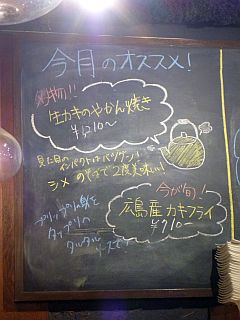 今月のオススメ!
名物!!
生カキのやかん焼き
¥1210〜
見た目の
インパクトはバツグン!
シメのぞうすいで2度美味しい!
今が旬!
広島産カキフライ
¥710〜
プリップリの身を
タップリの
タルタル
ソースで♪